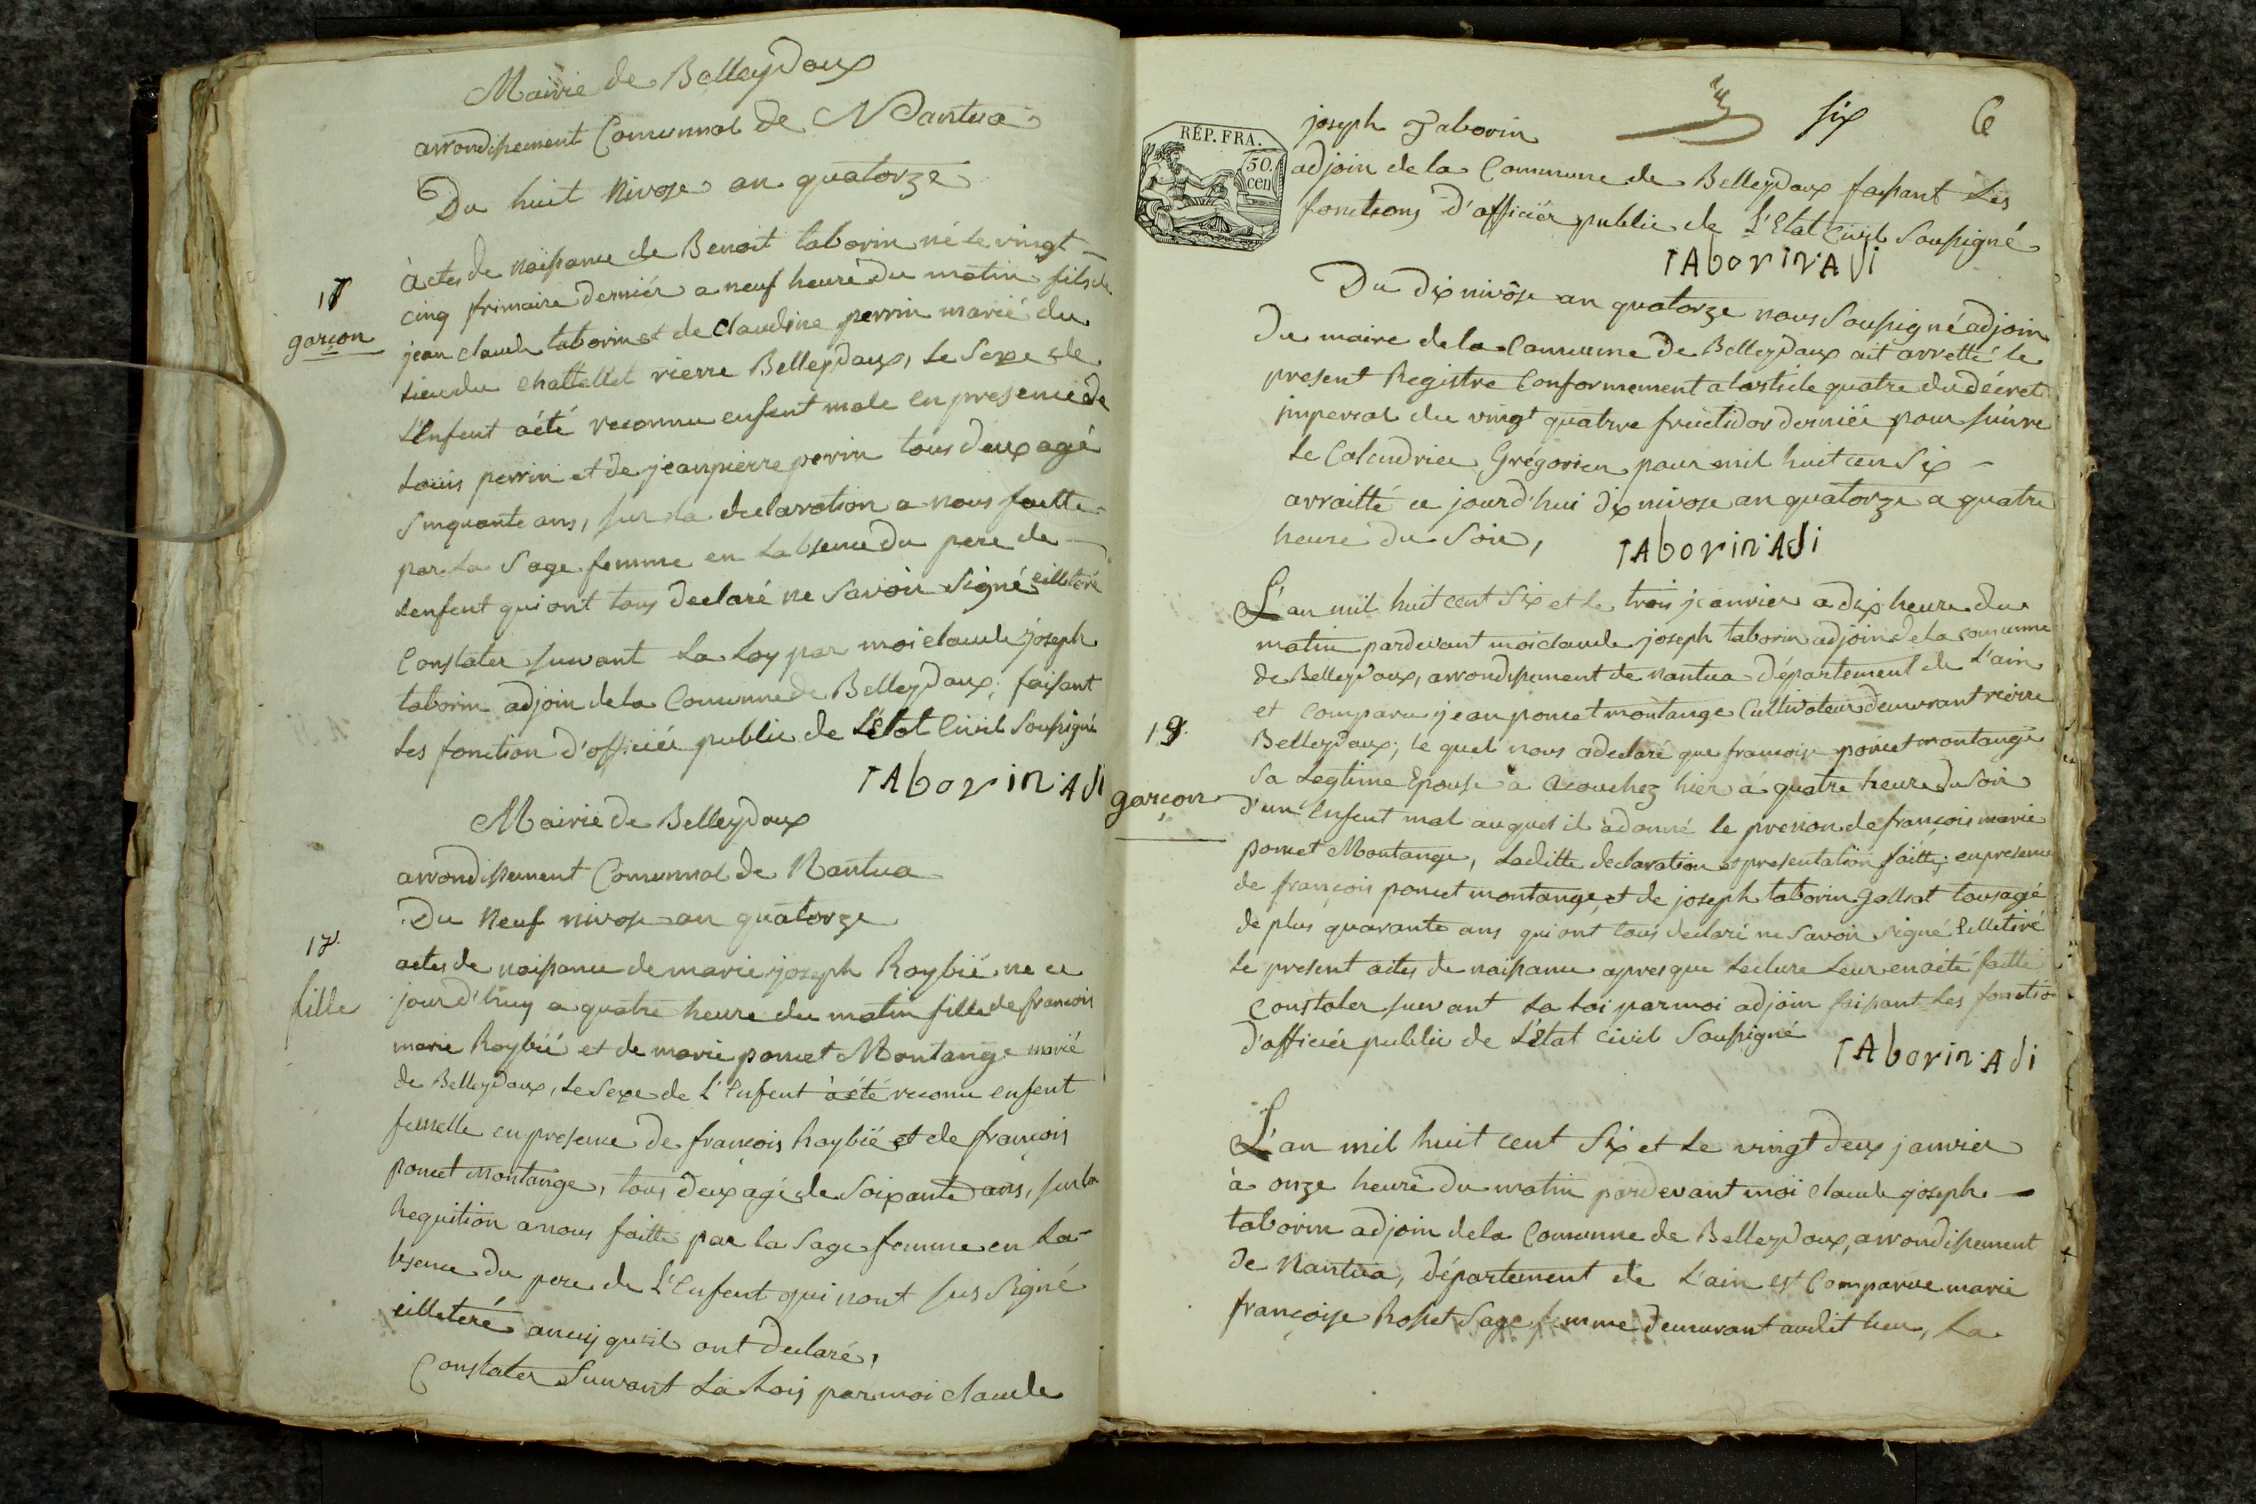 Mairie de Belleydoux
arrondissement Communal de Nantua
Du huit Nivose an quatorze
17
garçon
Actes de naissance de Benoit taborin né le vingt
cinq frimaire derniér a neuf heure du matin fils de
jean claude taborin et de Claudine perrin marié du
lieu du chattellet rierre Belleydoux, le Sexe de
L'Enfent aété reconnu enfent male en presence de
Louis perrin et de jeanpierre perrin tous deux agé
Sinquante ans, sur la declaration a nous faitte
par La Sage femme en Labsence du pere de
Lenfent qui ont tous declaré ne Savoir Signé eilleteré
Constater suivant La Loy par moi claude joseph
taborin adjoin de la Commune de Belleydoux; faisant
les fonction d'officiér public de L'état Civil Soussigné
TAborin Adi
Mairie de Belleydoux
arrondissement Communal de Nantua
Du Neuf nivose an quatorze
fille
actes de naissance de marie joseph Roybié ne ce
jourd'huy a quatre heure du matin fille de francois
marie Roybié et de marie poncet Montange marié
de Belleydoux, Le Sexe de L'Enfent à été reconnu enfent
femelle en presence de francois Roybié et de françois
poncet Montange, tous deux agé de Soixante ans, sur la
Requition a nous faitte par la Sage femme en La-
bsence du pere de L'Enfent qui nont sus Signé
eilleteré ainsy qu'il ont declaré,
Constater Suivant La Lois par moi claude
six 6
RÉP. FRA.
50.
cen
joseph Taborin
adjoin de la Commune de Belleydoux faisant Les
fonctions d'officiér public de L'Etat Civil Soussigné
TAborin Adi
Du dix nivôse an quatorze nous Soussigné adjoin
du maire de la Commune de Belleydoux ait arretté le
present Registre Conformement a larticle quatre du décret
imperial du vingt quatre fructidor derniér pour suivre
Le Calendrier Grégorien pour mil huit cen Six
arraitté ce jourd'hui dix nivose an quatorze a quatre
heure du Soir,
TAborin Adi
L'an mil huit cent Six et Le trois janvier a dix heure du
matin pardevant moi claude joseph taborin adjoin de la comunne
de Belleydoux, arrondissement de nantua département de L'ain
et comparu jean poncet montange Cultivateur demurant rierre
19
garçon
Belleydoux; le quel nous a declaré que francoise poncet montange
Sa Legtime Epouse a acouchez hier á quatre heure du Soir
d'un Enfent mal auquel il a donné le prenon de françois marie
poncet Montange, Laditte declaration et presentation faitte; en presence
de françois poncet montange, et de joseph taborin Gollsat tous agé
de plus quarante ans qui ont tous declaré ne Savoir Signé
Le present actes de naissance apres que Lecture Leur en aété faitte
Constater suivant La Loi par moi adjoin faisant Les fonctio
d'officiér public de L'état Civil Soussigné
TAborin Adi
L'an mil huit cent Six et Le vingt deux janvier
à onze heure du matin pardevant moi claude joseph
taborin adjoin de la Comunne de Belleydoux, arrondissement
de Nantua, département de L'ain est Comparue marie
françoise Rosset Sage femme demurant audit lieu, La